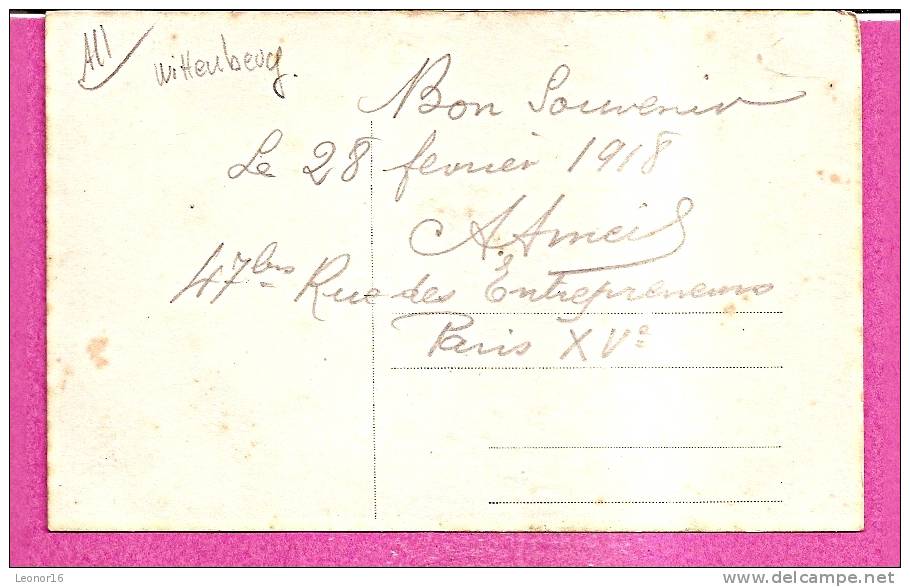 All
Wittenberg.
Bon Souvenir
Le 28 fevrier 1918
A. Ameil
47bis Rue des Entrepreneurs
Paris XVe
Leonor16
www.delcampe.net